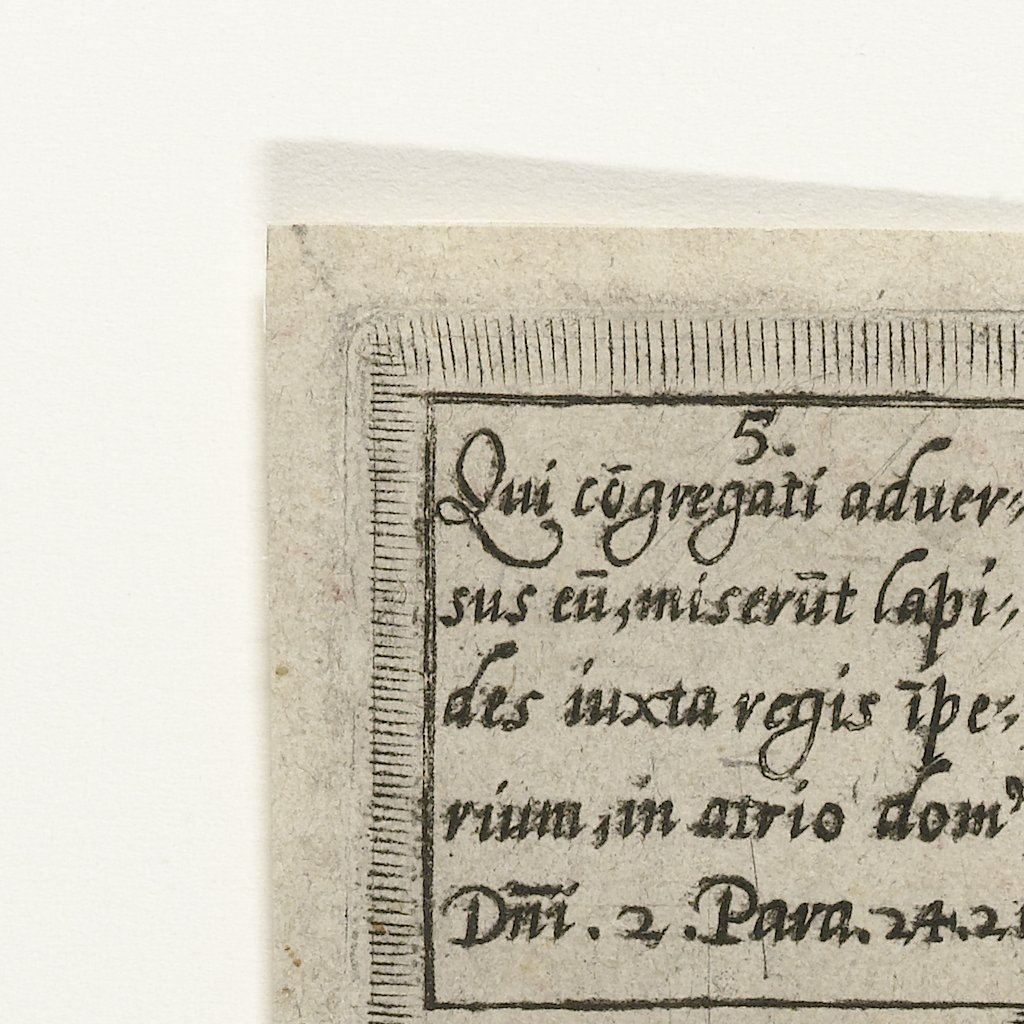 5.
Qui cōgregati aduer-
sus eū, miserūt lapi-
des iuxta regis īpe-
rium, in atrio dom⁹
Dn̄i. 2. Para. 24. 21